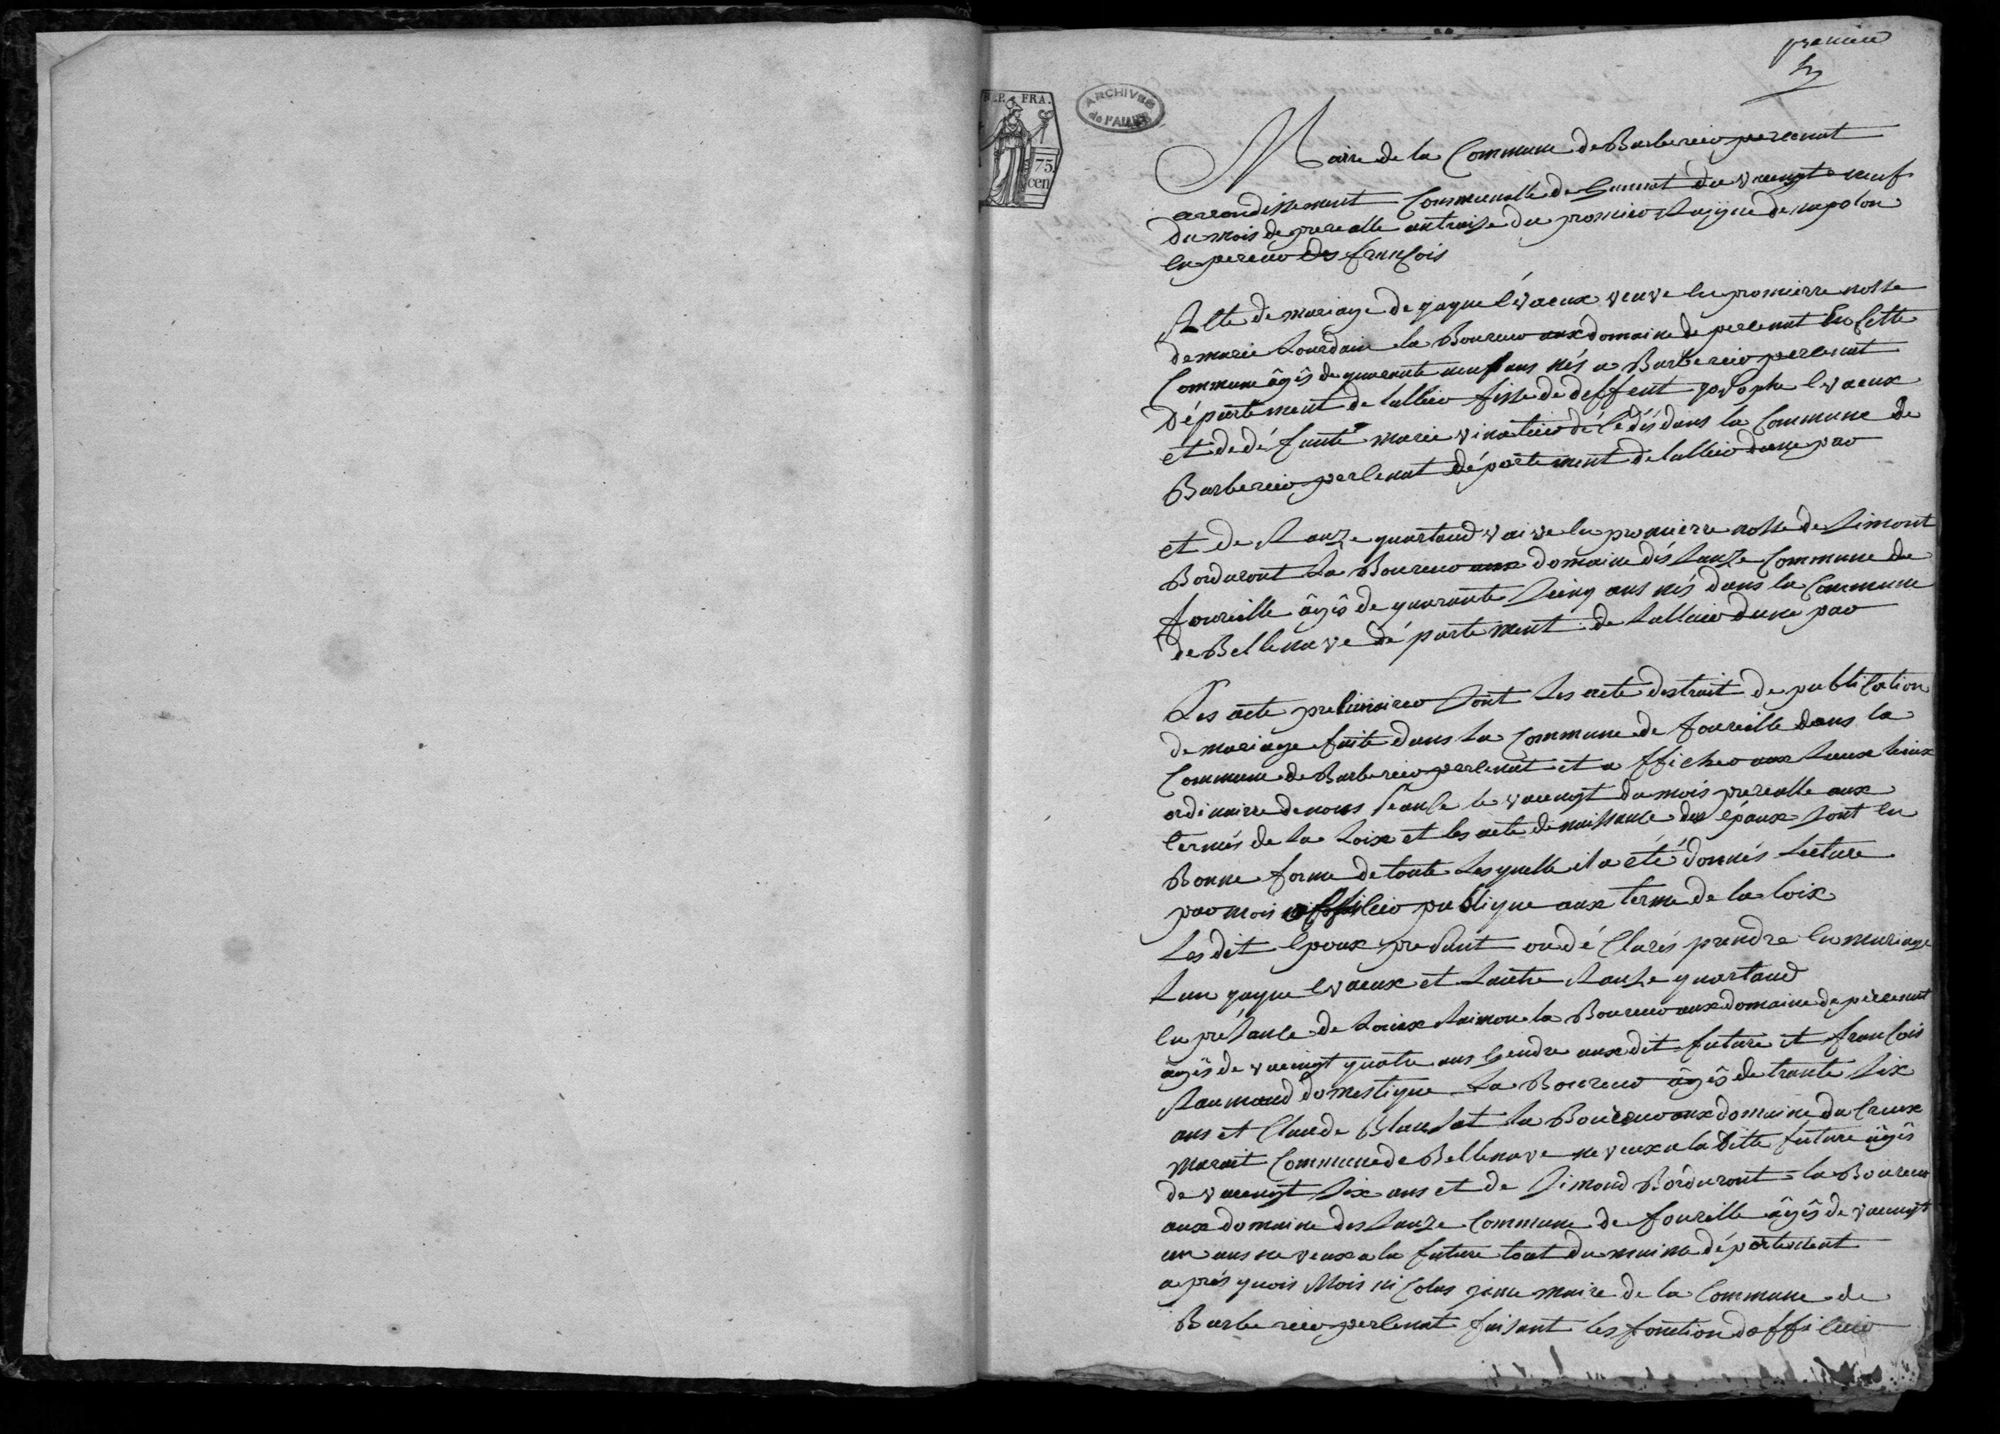 premier
REP. FRA.
75
cen
ARCHIVES
de l'ALLIER
Maire de la Commune de Barberier percenat
arrondissement Communalle de Gannat du vaingt neuf
du mois de prerealle an traise du promier Raigne de napolon
enpereur des françois
Acte de mariage de gaque levaeux veuve en promierre nosse
de marie Jourdain la Boureur aux domaine de percenat En Cette
Commune âgés de quarante neuf ans nés a Barberier percenat
Département de Lallier fisse de deffent josephe levaeux
et de dé funte marie vinatier dé Cédés dans la Commune de
Barberier percenat département de lallier dune par
et de Sanze quartaud vaive en promierre nosse de Simont
Borduront La Boureur aux domaine dés Sanze Commune de
foureille âgés de quarante Seing ans nés dans la Commune
de Bellenave dé partement de Lallier dune par
Les acte preliminaireo Sont Les acte destrait de publication
de mariage faite dans La Commune de foureille dans la
Commune de Barberier percenat et a ffichés aux Lieux
ordinaire de nous Séanse le vaiengt du mois prerealle aux
termés de La Loix et les acte de naissance des épaux Sont en
Bonne forme de toute Lesquelle il a été donnés Lecture
par mois officier publique aux terme de la loix
Les dit Epoux presant on dé Clarés prendre En mariage
Lun gaque levaeux et Lautre Sanze quartaud
En présance de Louix Saimon la Boureur aux domaine de percenat
âgés de vaeingt quatre ans Gendre aux dit future et françois
Raumaud domestique La Boureur âgés de trante Six
ans et Claude Blansat la Boureur aux domaine du Creux
marait Commune de Bellenave neveux a la ditte future âgés
de vaeingt Six ans et de Simond Borduront la Boureur
aux domaine des Sanze Commune de foureille âgés de vaeingt
un ans neveux a la future tout du maime département
a prés quois Mois ni Colas maire de la Commune de
Barberier percenat faisant les fonction dofficier